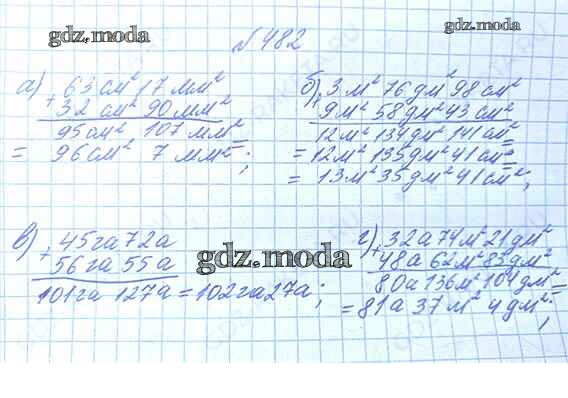 gdz.moda
gdz.moda
№482
а) 63 см² 17 мм²
+ 32 см² 90 мм²
95 см² 107 мм² =
= 96 см² 7 мм²;
б) 3 м² 76 дм² 98 см²
+ 9 м² 58 дм² 43 см²
12 м² 134 дм² 141 см² =
= 12 м² 135 дм² 41 см² =
= 13 м² 35 дм² 41 см²;
в) 45 га 72 а
+ 56 га 55 а
101 га 127 а = 102 га 27 а;
gdz.moda
г) 32 а 74 м² 21 дм²
+ 48 а 62 м² 83 дм²
80 а 136 м² 104 дм² =
= 81 а 37 м² 4 дм²;